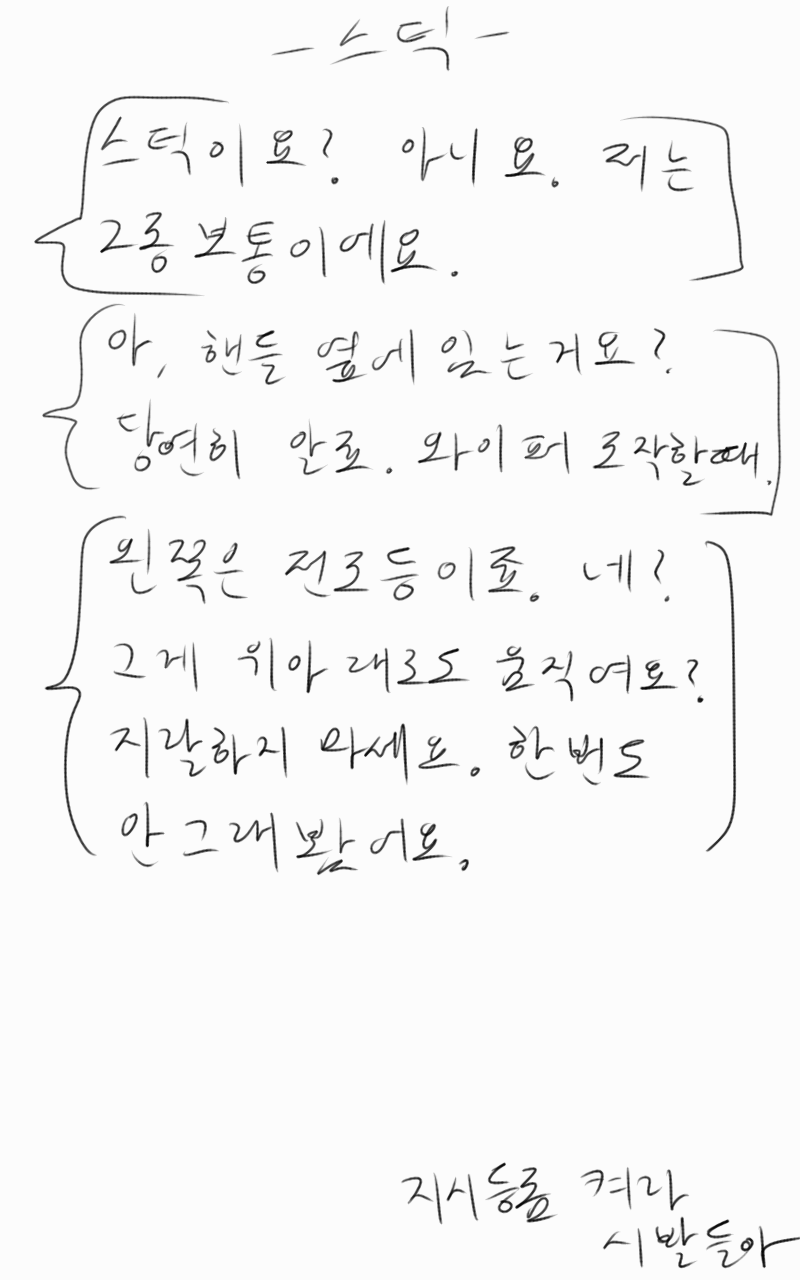 - 스틱 -
스틱이요? 아니요. 저는
2종 보통이에요.
아, 핸들 옆에 있는거요?
당연히 알죠. 와이퍼 조작할때.
왼쪽은 전조등이죠. 네?
그게 위아래로도 움직여요?
지랄하지 마세요. 한번도
안그래봤어요.
지시등좀 켜라
시발들아